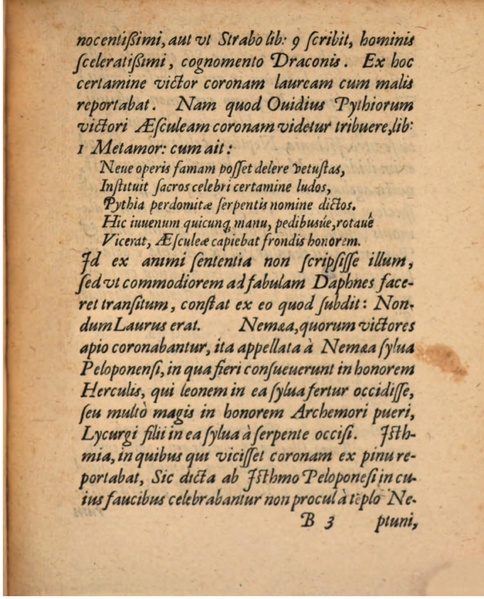 nocentißimi, aut vt Strabo lib: 9 ſcribit, hominis
ſceleratißimi, cognomento Draconis. Ex hoc
certamine victor coronam lauream cum malis
reportabat. Nam quod Ouidius Pythiorum
victori Æſculeam coronam videtur tribuere, lib:
1 Metamor: cum ait:
Neue operis famam poſſet delere vetuſtas,
Inſtituit ſacros celebri certamine ludos,
Pythia perdomitæ ſerpentis nomine dictos.
Hic iuuenum quicunq; manu, pedibusúe, rotaué
Vicerat, Æſculeæ capiebat frondis honorem.
Id ex animi ſententia non ſcripſiſſe illum,
ſed vt commodiorem ad fabulam Daphnes face-
ret tranſitum, conſtat ex eo quod ſubdit: Non-
dum Laurus erat. Nemæa, quorum victores
apio coronabantur, ita appellata à Nemæa ſylua
Peloponenſi, in qua fieri conſueuerunt in honorem
Herculis, qui leonem in ea ſylua fertur occidiſſe,
ſeu multò magis in honorem Archemori pueri,
Lycurgi filii in ea ſylua à ſerpente occiſi. Iſth-
mia, in quibus qui viciſſet coronam ex pinu re-
portabat, Sic dicta ab Iſthmo Peloponeſi in cu-
ius faucibus celebrabantur non procul à tẽplo Ne-
B 3 ptuni,